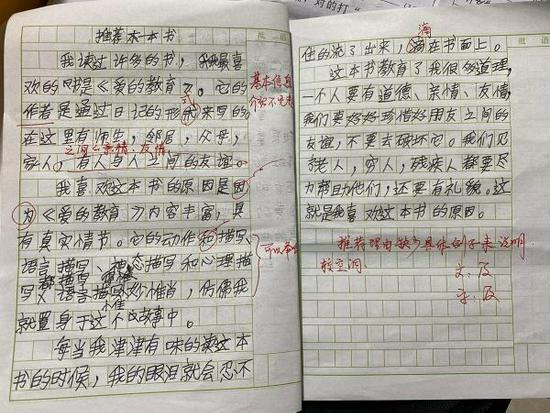 推荐一本书
我读过许多的书，我最喜
欢的书是《爱的教育》。它的
作者是通过日记的形式来写的
基本信息
介绍不完整
在这里有师生，邻居，父母，
之间的亲情、友情
家人，有人与人之间的友谊。
我喜欢这本书的原因是因
为《爱的教育》内容丰富，具
有真实情节。它的动作和描写、
语言描写、神态描写和心理描
写
语言描写妙惟肖，仿佛我
就置身于这个故事中。
每当我津津有味的读这本
书的时候，我的眼泪就会忍不
滴
住的流了出来，滴在书面上。
这本书教育了我很多道理，
一个人要有道德、亲情、友情
我们要好好珍惜好朋友之间的
友谊，不要去破坏它。我们见
老人，穷人，残疾人都要尽
力帮助他们，还要有礼貌。这
就是我喜欢这本书的原因。
推荐理由缺少具体例子来说明
较空洞。